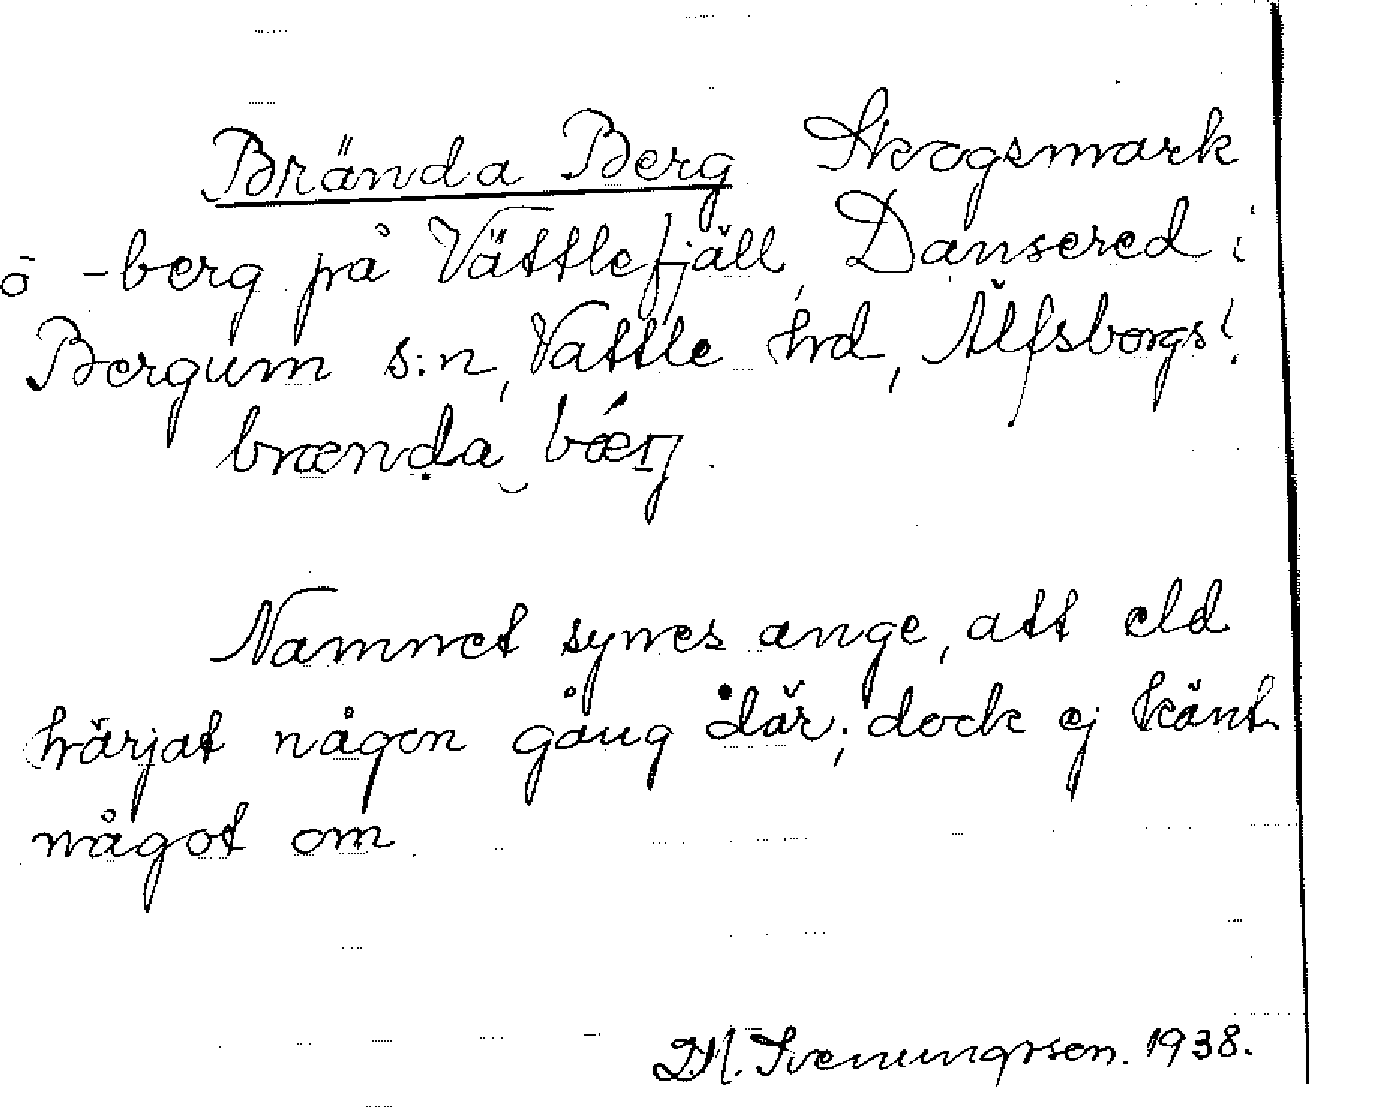 Brända Berg Skogsmark
o -berg på Vättlefjäll, Dansered i
Bergum s:n, Vättle hrd, Älfsborgs l.
brænda bærj.
Namnet synes ange, att eld
härjat någon gång där; dock ej känt
något om.
Svenungsson. 1938.